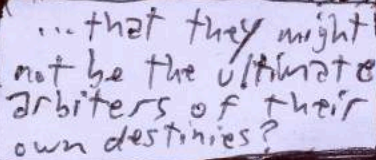 ...that they might
not be the ultimate
arbiters of their
own destinies?